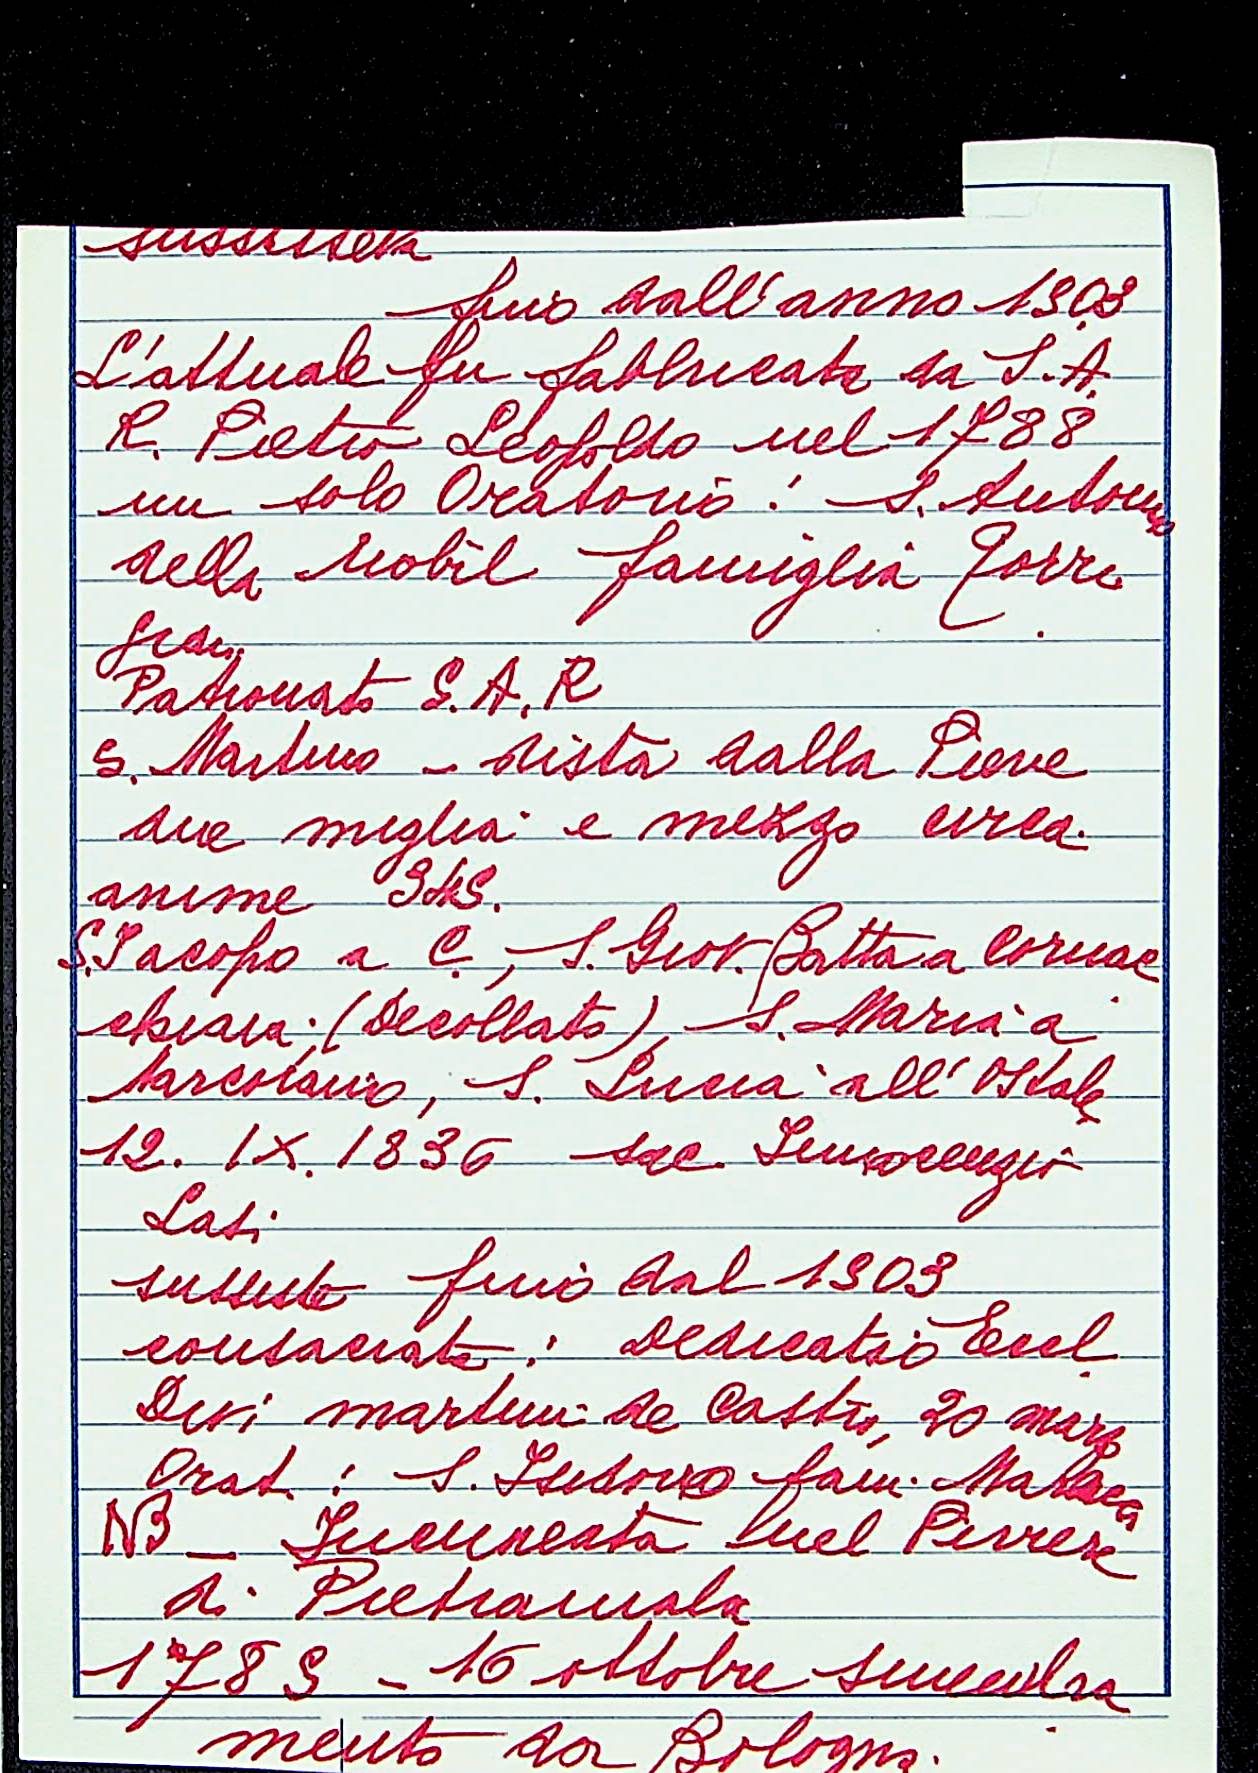 sussisteva
fino dall'anno 1303
L'attuale fu fabbricata da S.A.
R. Pietro Leopoldo nel 1788
un solo Oratorio: S. Antonio
della nobil famiglia Torri
giani
Patronato S.A.R
S. Martino - dista dalla Pieve
due miglia e mezzo circa.
anime
S. Jacopo a C., S. Giov. Batta a Cornac
chiaia (Decollato), S. Maria a
S. Lucia all'Ostale
12. IX. 1836 sac. Innocenzio
Lasi
sussiste fino dal 1303
consacrata: Dedicatio Eccl.
Divi martini de Castro, 20 marzo
Orat.: S. Isidoro fam.
NB - nel Piviere
di Pietramala
1789 - 16 ottobre smembra
mento da Bologna.